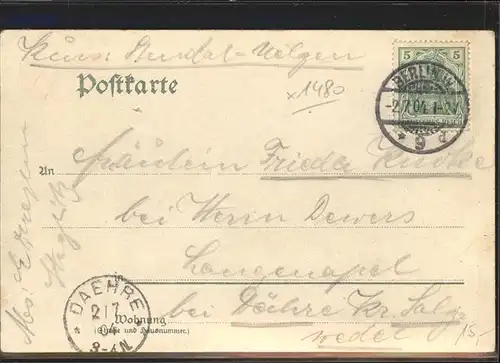 Kurs: Stendal-Uelzen
Postkarte
x1480
5 5
BERLIN
-2.7.04. 1-
* 9 d
An
Fräulein Frieda
bei Herrn Dewers
Langenapel
bei Dähre Kr. Salz
wedel
15-
Wohnung
(Straße und Hausnummer.)
DAEHRE
2/7
04
8-9 N.